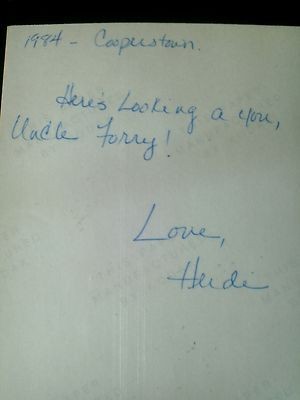 1984 - Cooperstown.
Here's Looking a you,
Uncle Forry!
Love,
Heidi